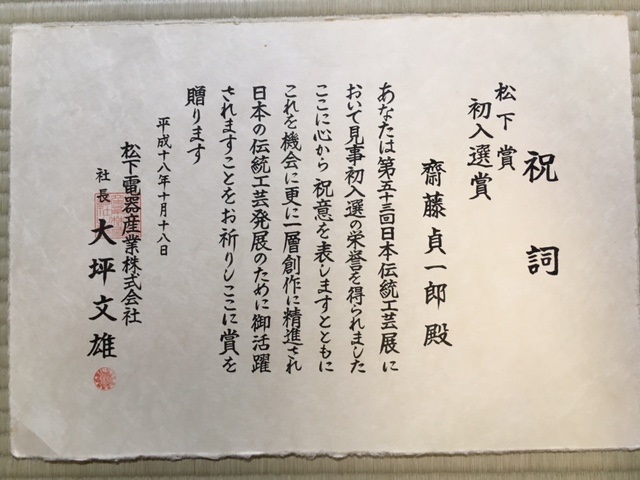 祝詞
松下賞
初入選賞
齋藤貞一郎殿
あなたは第五十三回日本伝統工芸展に
おいて見事初入選の栄誉を得られました
ここに心から祝意を表しますとともに
これを機会に更に一層創作に精進され
日本の伝統工芸発展のために御活躍
されますことをお祈りしここに賞を
贈ります
平成十八年十月十八日
松下電器産業株式会社
社長 大坪文雄